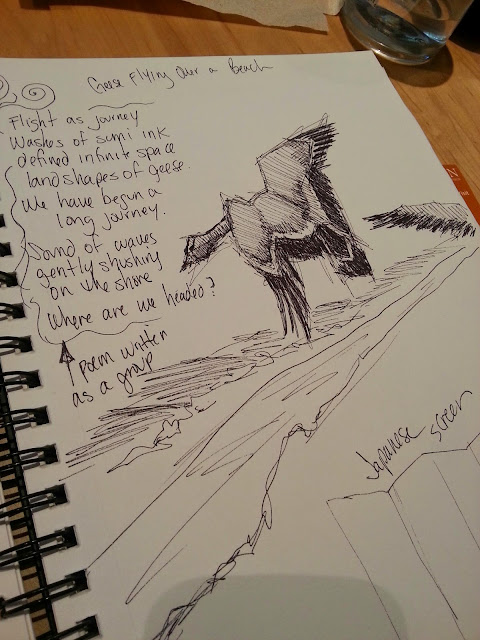 Geese Flying Over a Beach
Flight as journey
Washes of sumi ink
defined infinite space
land shapes of geese.
We have begun a
long journey.
Sound of waves
gently shushing
on the shore
Where are we headed?
Poem written
as a group
Japanese screen